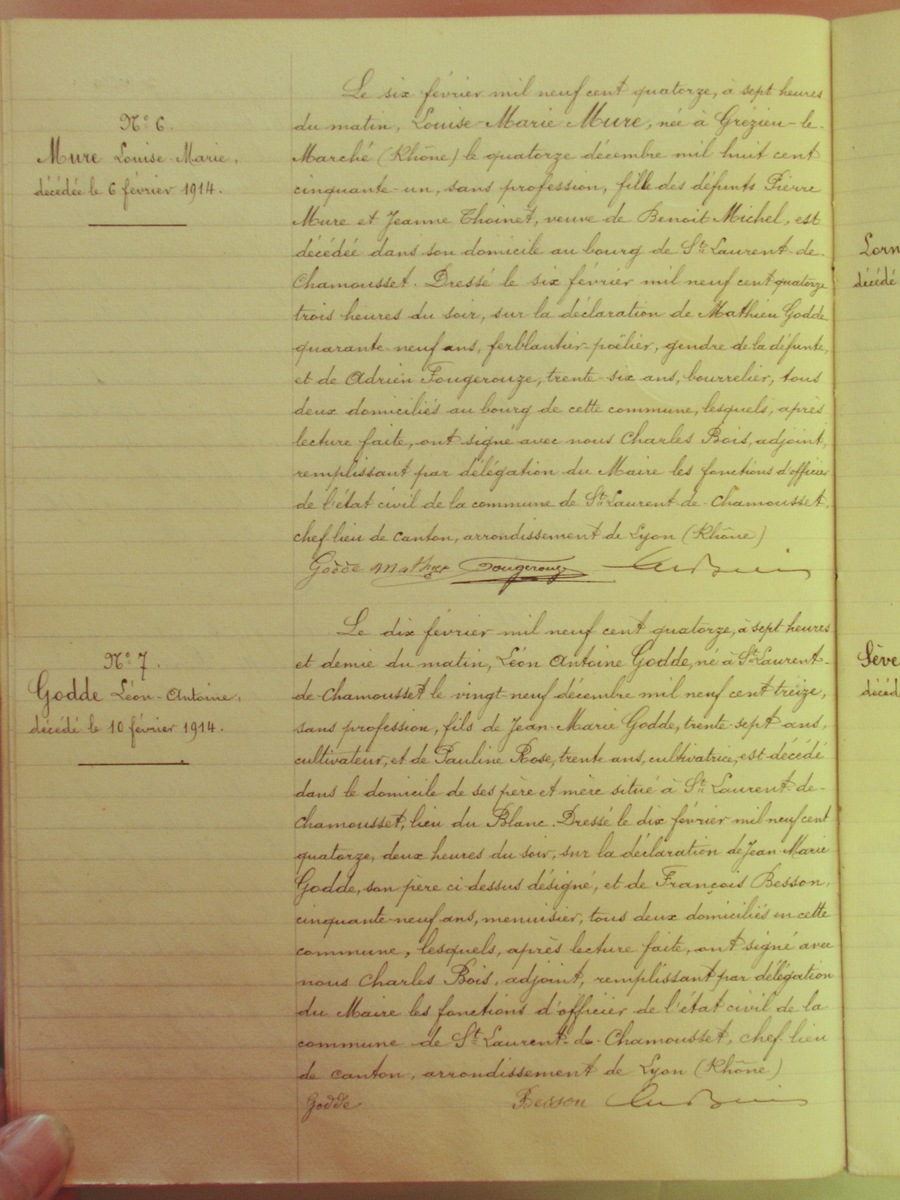 N° 6.
Mure Louise-Marie,
décédée le 6 février 1914.
Le six février mil neuf cent quatorze, à sept heures
du matin, Louise-Marie Mure, née à Grézieu-le-
Marché (Rhône) le quatorze décembre mil huit cent
cinquante-un, sans profession, fille des défunts Pierre
Mure et Jeanne Thoinet, veuve de Benoit Michel, est
décédée dans son domicile au bourg de St Laurent-de-
Chamousset. Dressé le six février mil neuf cent quatorze
trois heures du soir, sur la déclaration de Mathieu Godde
quarante-neuf ans, ferblantier-poëlier, gendre de la défunte,
et de Adrien Fougerouze, trente-six ans, bourrelier, tous
deux domiciliés au bourg de cette commune, lesquels, après
lecture faite, ont signé avec nous Charles Bois, adjoint,
remplissant par délégation du Maire les fonctions d'officier
de l'état civil de la commune de St Laurent-de-Chamousset,
chef lieu de canton, arrondissement de Lyon (Rhône)
Godde Fougerouze
N° 7.
Godde Léon-Antoine,
décédé le 10 février 1914.
Le dix février mil neuf cent quatorze, à sept heures
et demie du matin, Léon Antoine Godde, né à St Laurent-
de-Chamousset le vingt neuf décembre mil neuf cent treize,
sans profession, fils de Jean-Marie Godde, trente-sept ans,
cultivateur, et de Pauline Rose, trente ans, cultivatrice, est décédé
dans le domicile de ses père et mère situé à St Laurent-de-
Chamousset, lieu du Blanc. Dressé le dix février mil neuf cent
quatorze, deux heures du soir, sur la déclaration de Jean-Marie
Godde, son père ci-dessus désigné, et de François Besson,
cinquante-neuf ans, menuisier, tous deux domiciliés en cette
commune, lesquels, après lecture faite, ont signé avec
nous Charles Bois, adjoint, remplissant par délégation
du Maire les fonctions d'officier de l'état civil de la
commune de St Laurent-de-Chamousset, chef lieu
de canton, arrondissement de Lyon (Rhône)
Godde Besson
Lorn
décédé
Sève
décéd